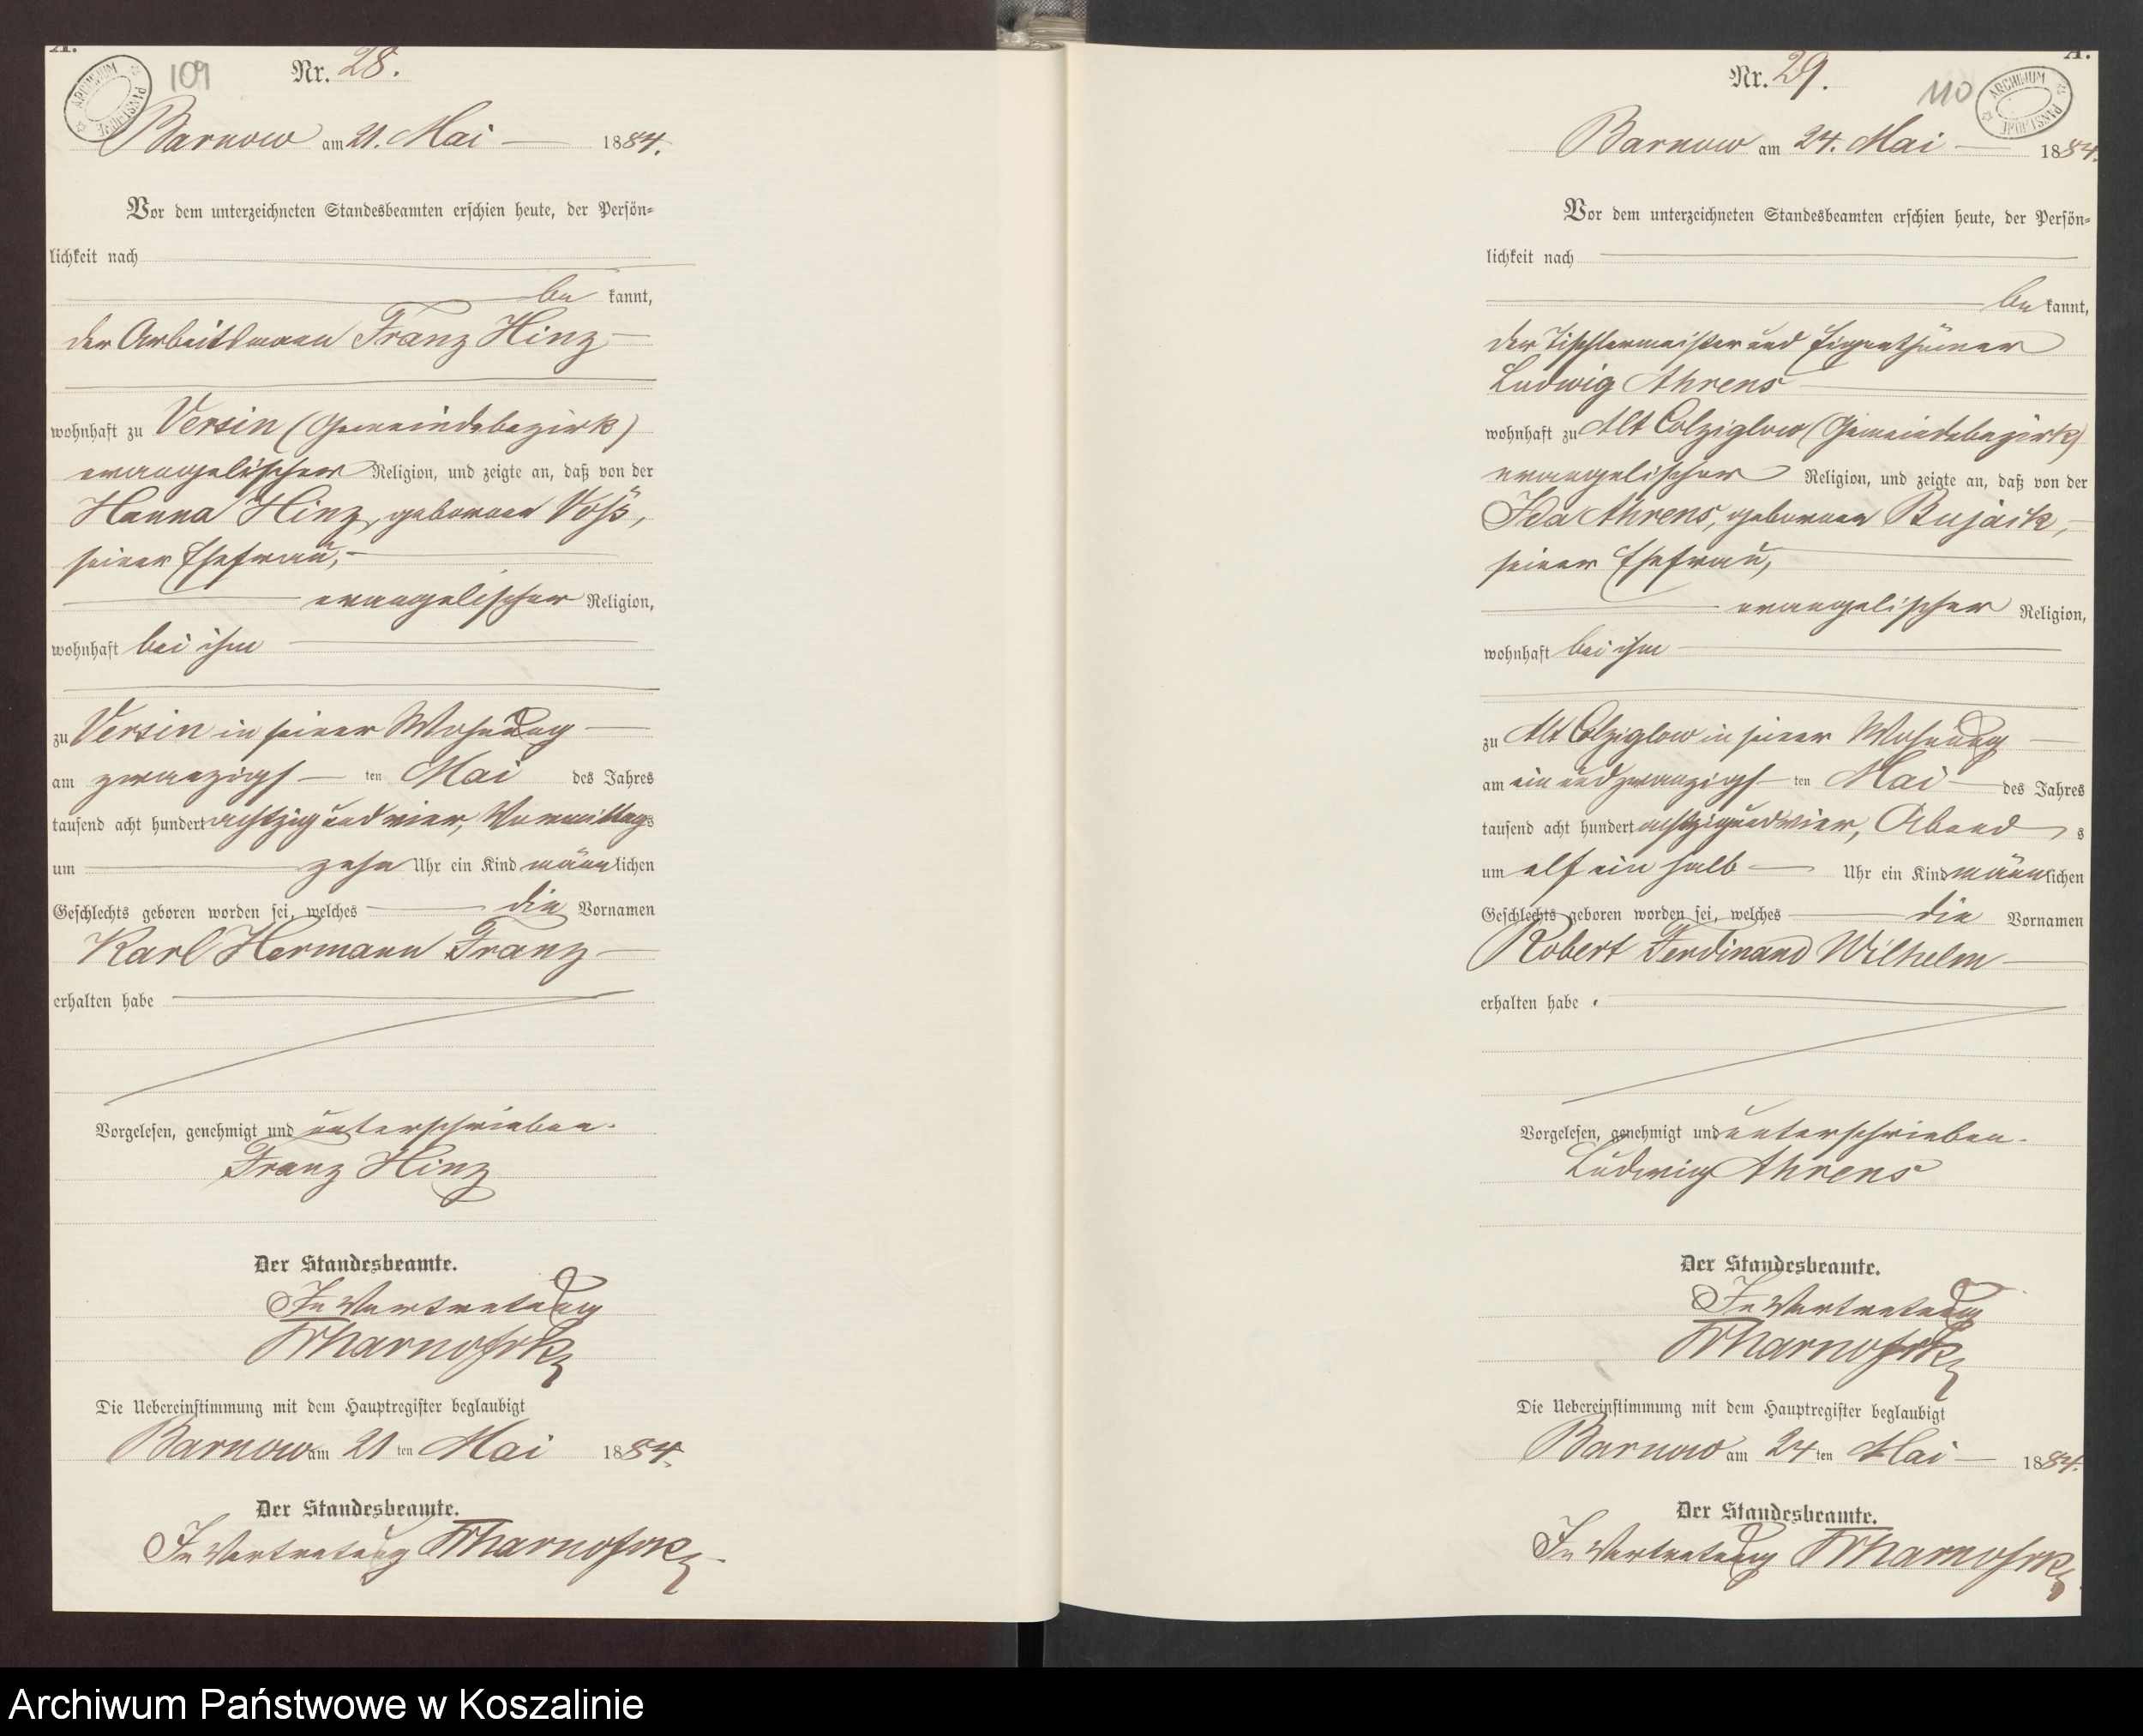 A.
ARCHIWUM PAŃSTWOWE
109
Nr. 28.
Barnow am 21. Mai 1884.
Vor dem unterzeichneten Standesbeamten erschien heute, der Persön=
lichkeit nach
be kannt,
der Arbeitsmann Franz Hinz
wohnhaft zu Versin (Gemeindebezirk)
evangelischer Religion, und zeigte an, daß von der
Hanna Hinz, geborenen Voß,
seiner Ehefrau,
evangelischer Religion,
wohnhaft bei ihm
zu Versin in seiner Wohnung
am zwanzigs ten Mai des Jahres
tausend acht hundert achtzig und vier, Vormittags
um zehn Uhr ein Kind männlichen
Geschlechts geboren worden sei, welches die Vornamen
Karl Hermann Franz
erhalten habe
Vorgelesen, genehmigt und unterschrieben.
Franz Hinz
Der Standesbeamte.
In Vertretung
Die Uebereinstimmung mit dem Hauptregister beglaubigt
Barnow am 21 ten Mai 1884.
Der Standesbeamte.
In Vertretung
A.
110
ARCHIWUM PAŃSTWOWE
Nr. 29.
Barnow am 24. Mai 1884.
Vor dem unterzeichneten Standesbeamten erschien heute, der Persön=
lichkeit nach
be kannt,
der Tischlermeister und Eigenthümer
Ludwig Ahrens
wohnhaft zu Alt Colziglow (Gemeindebezirk)
evangelischer Religion, und zeigte an, daß von der
Ida Ahrens, geborenen Bujack,
seiner Ehefrau,
evangelischer Religion,
wohnhaft bei ihm
zu Alt Colziglow in seiner Wohnung
am ein und zwanzigs ten Mai des Jahres
tausend acht hundert achtzig und vier, Abend s
um elf ein halb Uhr ein Kind männlichen
Geschlechts geboren worden sei, welches die Vornamen
Robert Ferdinand Wilhelm
erhalten habe.
Vorgelesen, genehmigt und unterschrieben.
Ludwig Ahrens
Der Standesbeamte.
In Vertretung
Die Uebereinstimmung mit dem Hauptregister beglaubigt
Barnow am 24 ten Mai 1884.
Der Standesbeamte.
In Vertretung
Archiwum Państwowe w Koszalinie